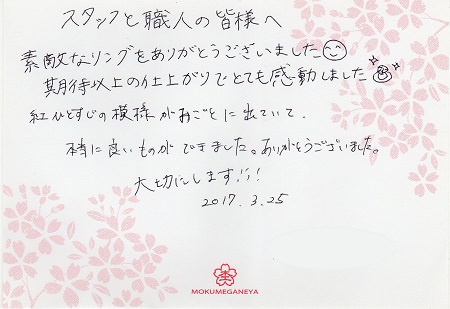 スタッフと職人の皆様へ
素敵なリングをありがとうございました
期待以上の仕上がりでとても感動しました
紅ひとすじの模様がみごとに出ていて、
本当に良いものができました。ありがとうございました。
大切にします!!!
2017. 3. 25
MOKUMEGANEYA